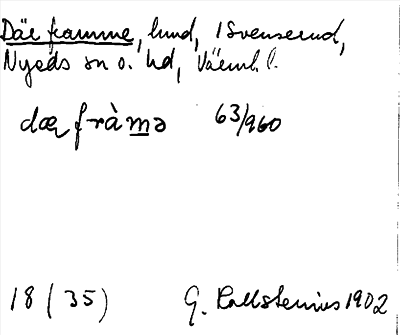 Där framme, lund, i Svenserud,
Nyeds sn o. hd, Värml. l.
dœ fràmə 63/960
18 (35) G. Kallstenius 1902